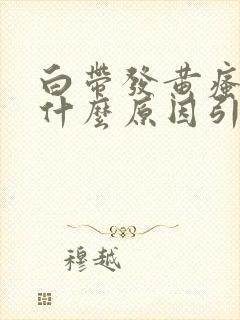 白帶發黃瘙
什麼原因引
穆越